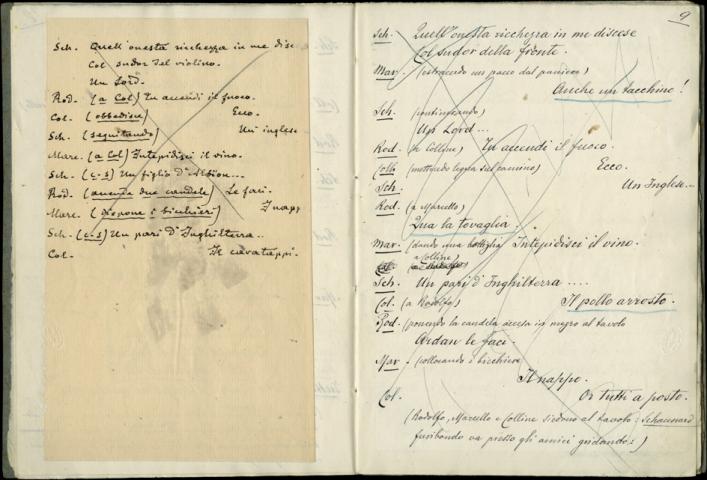 Sch. Quell'onesta ricchezza in me disc
Col sudor del violino.
Un Lord.
Rod. (a Col) tu accendi il fuoco.
Col. (obbedisce) Ecco.
Sch. (seguitando) Un inglese
Marc. (a Col) Intepidisci il vino.
Sch. (c-s) Un figlio d'Albion...
Rod. (accende due candele) Le fari.
Marc. (dispone i bicchieri) Il napp
Sch. (c-s) Un pari d'Inghilterra...
Col. Il cavatappi.
9
Sch. Quell'onesta ricchezza in me discese
Col sudor della fronte.
Mar. (estraendo un pacco dal paniere)
Anche un tacchino!
Sch. (continuando)
Un Lord...
Rod. (a Colline) Tu accendi il fuoco.
Coll. (mettendo legna nel camino) Ecco.
Sch. Un Inglese...
Rod. (a Marcello)
Qua la tovaglia.
Mar. (dando una bottiglia a Colline) Intepidisci il vino.
Sch. Un pari d'Inghilterra....
Col. (a Rodolfo) Il pollo arrosto.
Rod. (ponendo la candela accesa in mezzo al tavolo
Ardan le faci.
Mar. (collocando i bicchieri
Il nappo.
Col. Or tutti a posto.
(Rodolfo, Marcello e Colline siedono al tavolo: Schaunard
furibondo va presso gli amici gridando:)